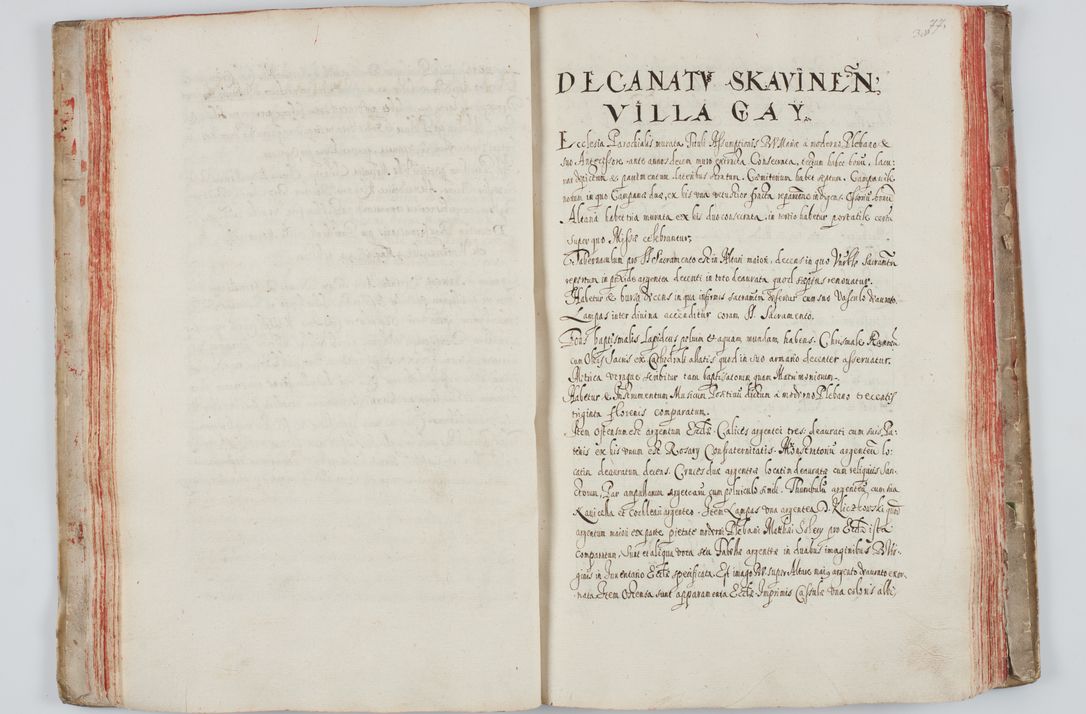 77.
DECANATV SKAVINEÑ;
VILLA GAY.
Ecclesia Parochialis murata Tituli Assumptionis BV Mariæ a moderno Plebano &
suo Antecessore ante annos decem muro extructa Consecrata, tectum habet bonū, lacu:
nar depictum & pavimentum lateribus stratum. Cœmiterium habet septum. Campanile
novum in quo Campanæ duæ, ex his una vetustior fracta reparatiōe indigens.
Altaria habet tria murata ex his duo consecrata, in tertio habetur portatile
super quo Missæ celebrantur.
Tabernaculum pro SS. Sacramento est in Altari maiori, decens in quo Sacramētū
repertum in pixide argentea decenti in toto deaurata quod sæpius renovatur.
Habetur & bursa decens in qua infirmis Sacramētū defertur cum suo Vasculo deaurato.
Lampas inter divina accenditur coram SS. Sacramento.
Fons baptismalis Lapideus et aquam mundam habens. Chrismale
cum Oleis Sacris ex Cathedrali allatis quod in suo armario decenter asservatur.
Metrica utraque scribitur tam baptisatorum quam Matrimoniorum.
Habetur & Instrumentum Musicum Positivū dictum a moderno Plebano trecentis
triginta florenis comparatum.
Item ostensum est argentum Eccl̄æ. Calices argentei tres deaurati cum suis Pa-
tenis ex his unum est Rosarij Confraternitatis. Monstrantoriū argenteū lo-
catim deauratum decens. Cruces duæ argenteæ locatim deauratæ cum reliquijs San-
ctorum, Par ampullarum argentearū cum pelviculo simili. Thuribulū argenteū cum sua
Navicella et cochleari argenteo. Item Lampas una argentea D. Kliczkowski quod
argentum maiori ex parte pietate moderni Plebani Matthæi pro Eccl̄a ista
comparatum, Sunt et aliqua vota seu Tabellæ argenteæ in duabus imaginibus B. Vir-
ginis in Inventario Eccl̄æ specificata. Est imago super Altare maius argento deaurato exor-
nata. Item Ostensa sunt apparamenta Eccl̄æ. Imprimis Casulæ una coloris albi,